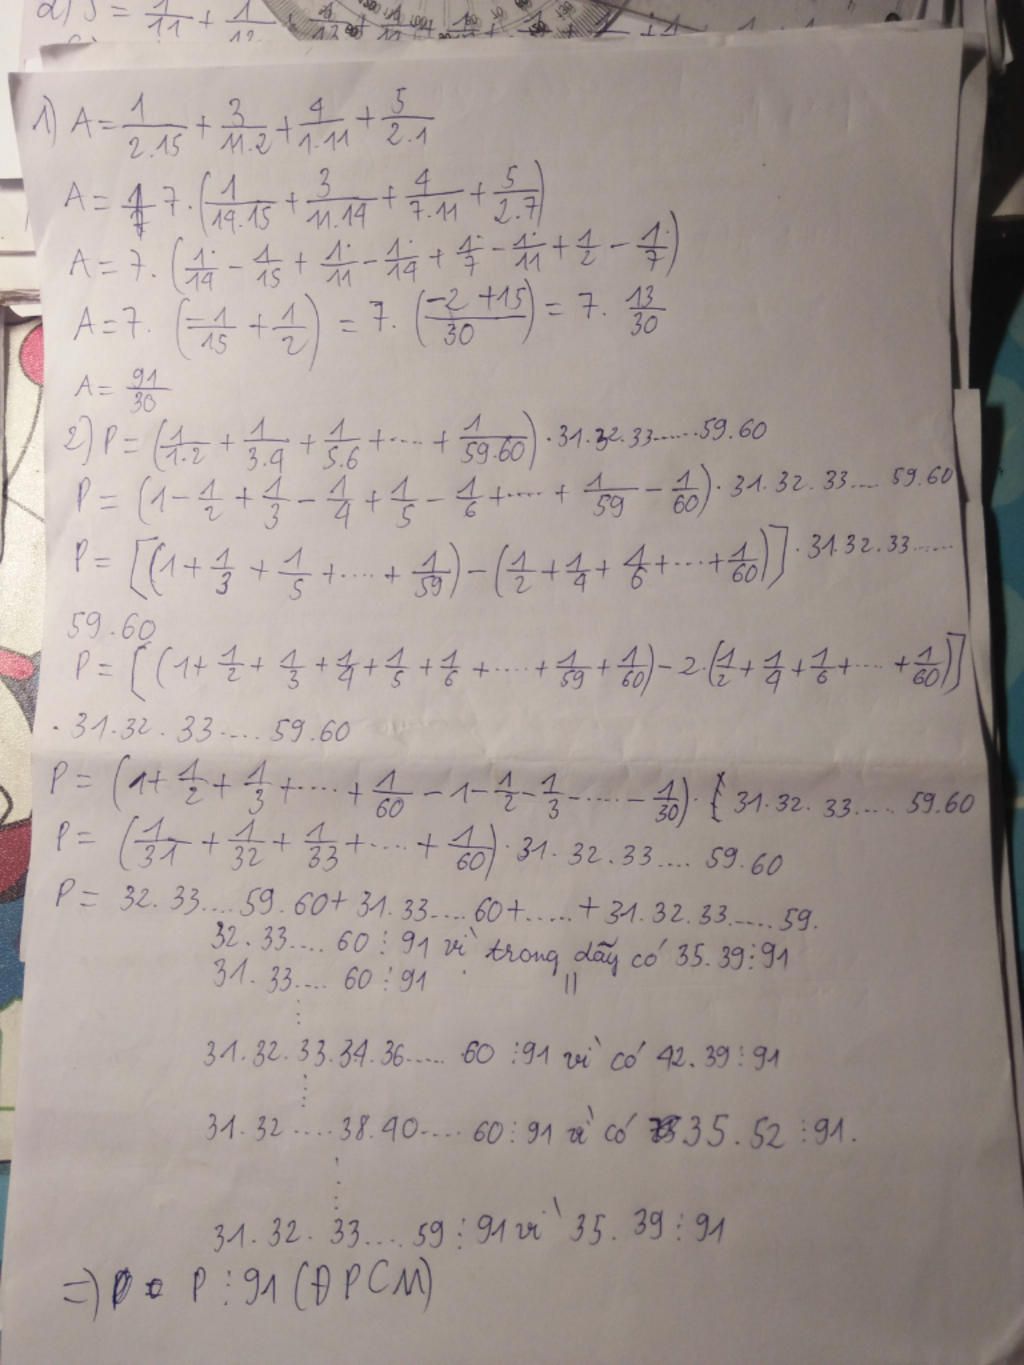 1) A = 1/2.15 + 3/11.2 + 4/1.11 + 5/2.1
A = 7.(1/14.15 + 3/11.14 + 4/7.11 + 5/2.7)
A = 7.(1/14 - 1/15 + 1/11 - 1/14 + 1/7 - 1/11 + 1/2 - 1/7)
A = 7.(-1/15 + 1/2) = 7.(-2+15/30) = 7. 13/30
A = 91/30
2) P = (1/1.2 + 1/3.4 + 1/5.6 + .... + 1/59.60) . 31.32.33......59.60
P = (1 - 1/2 + 1/3 - 1/4 + 1/5 - 1/6 + .... + 1/59 - 1/60) . 31.32.33.... 59.60
P = [(1 + 1/3 + 1/5 + .... + 1/59) - (1/2 + 1/4 + 1/6 + ... + 1/60)] . 31.32.33......
59.60
P = [(1 + 1/2 + 1/3 + 1/4 + 1/5 + 1/6 + .... + 1/59 + 1/60) - 2.(1/2 + 1/4 + 1/6 + .... + 1/60)]
. 31.32.33.... 59.60
P = (1 + 1/2 + 1/3 + .... + 1/60 - 1 - 1/2 - 1/3 - .... - 1/30) . 31.32.33.... 59.60
P = (1/31 + 1/32 + 1/33 + .... + 1/60) . 31.32.33.... 59.60
P = 32.33....59.60 + 31.33....60 + ..... + 31.32.33.....59.
32.33.... 60 ⋮ 91 vì trong dãy có 35.39 ⋮ 91
31.33.... 60 ⋮ 91 "
⋮
31.32.33.34.36..... 60 ⋮ 91 vì có 42.39 ⋮ 91
⋮
31.32....38.40.... 60 ⋮ 91 vì có 35.52 ⋮ 91.
⋮
31.32.33....59 ⋮ 91 vì 35.39 ⋮ 91
=) P ⋮ 91 (ĐPCM)